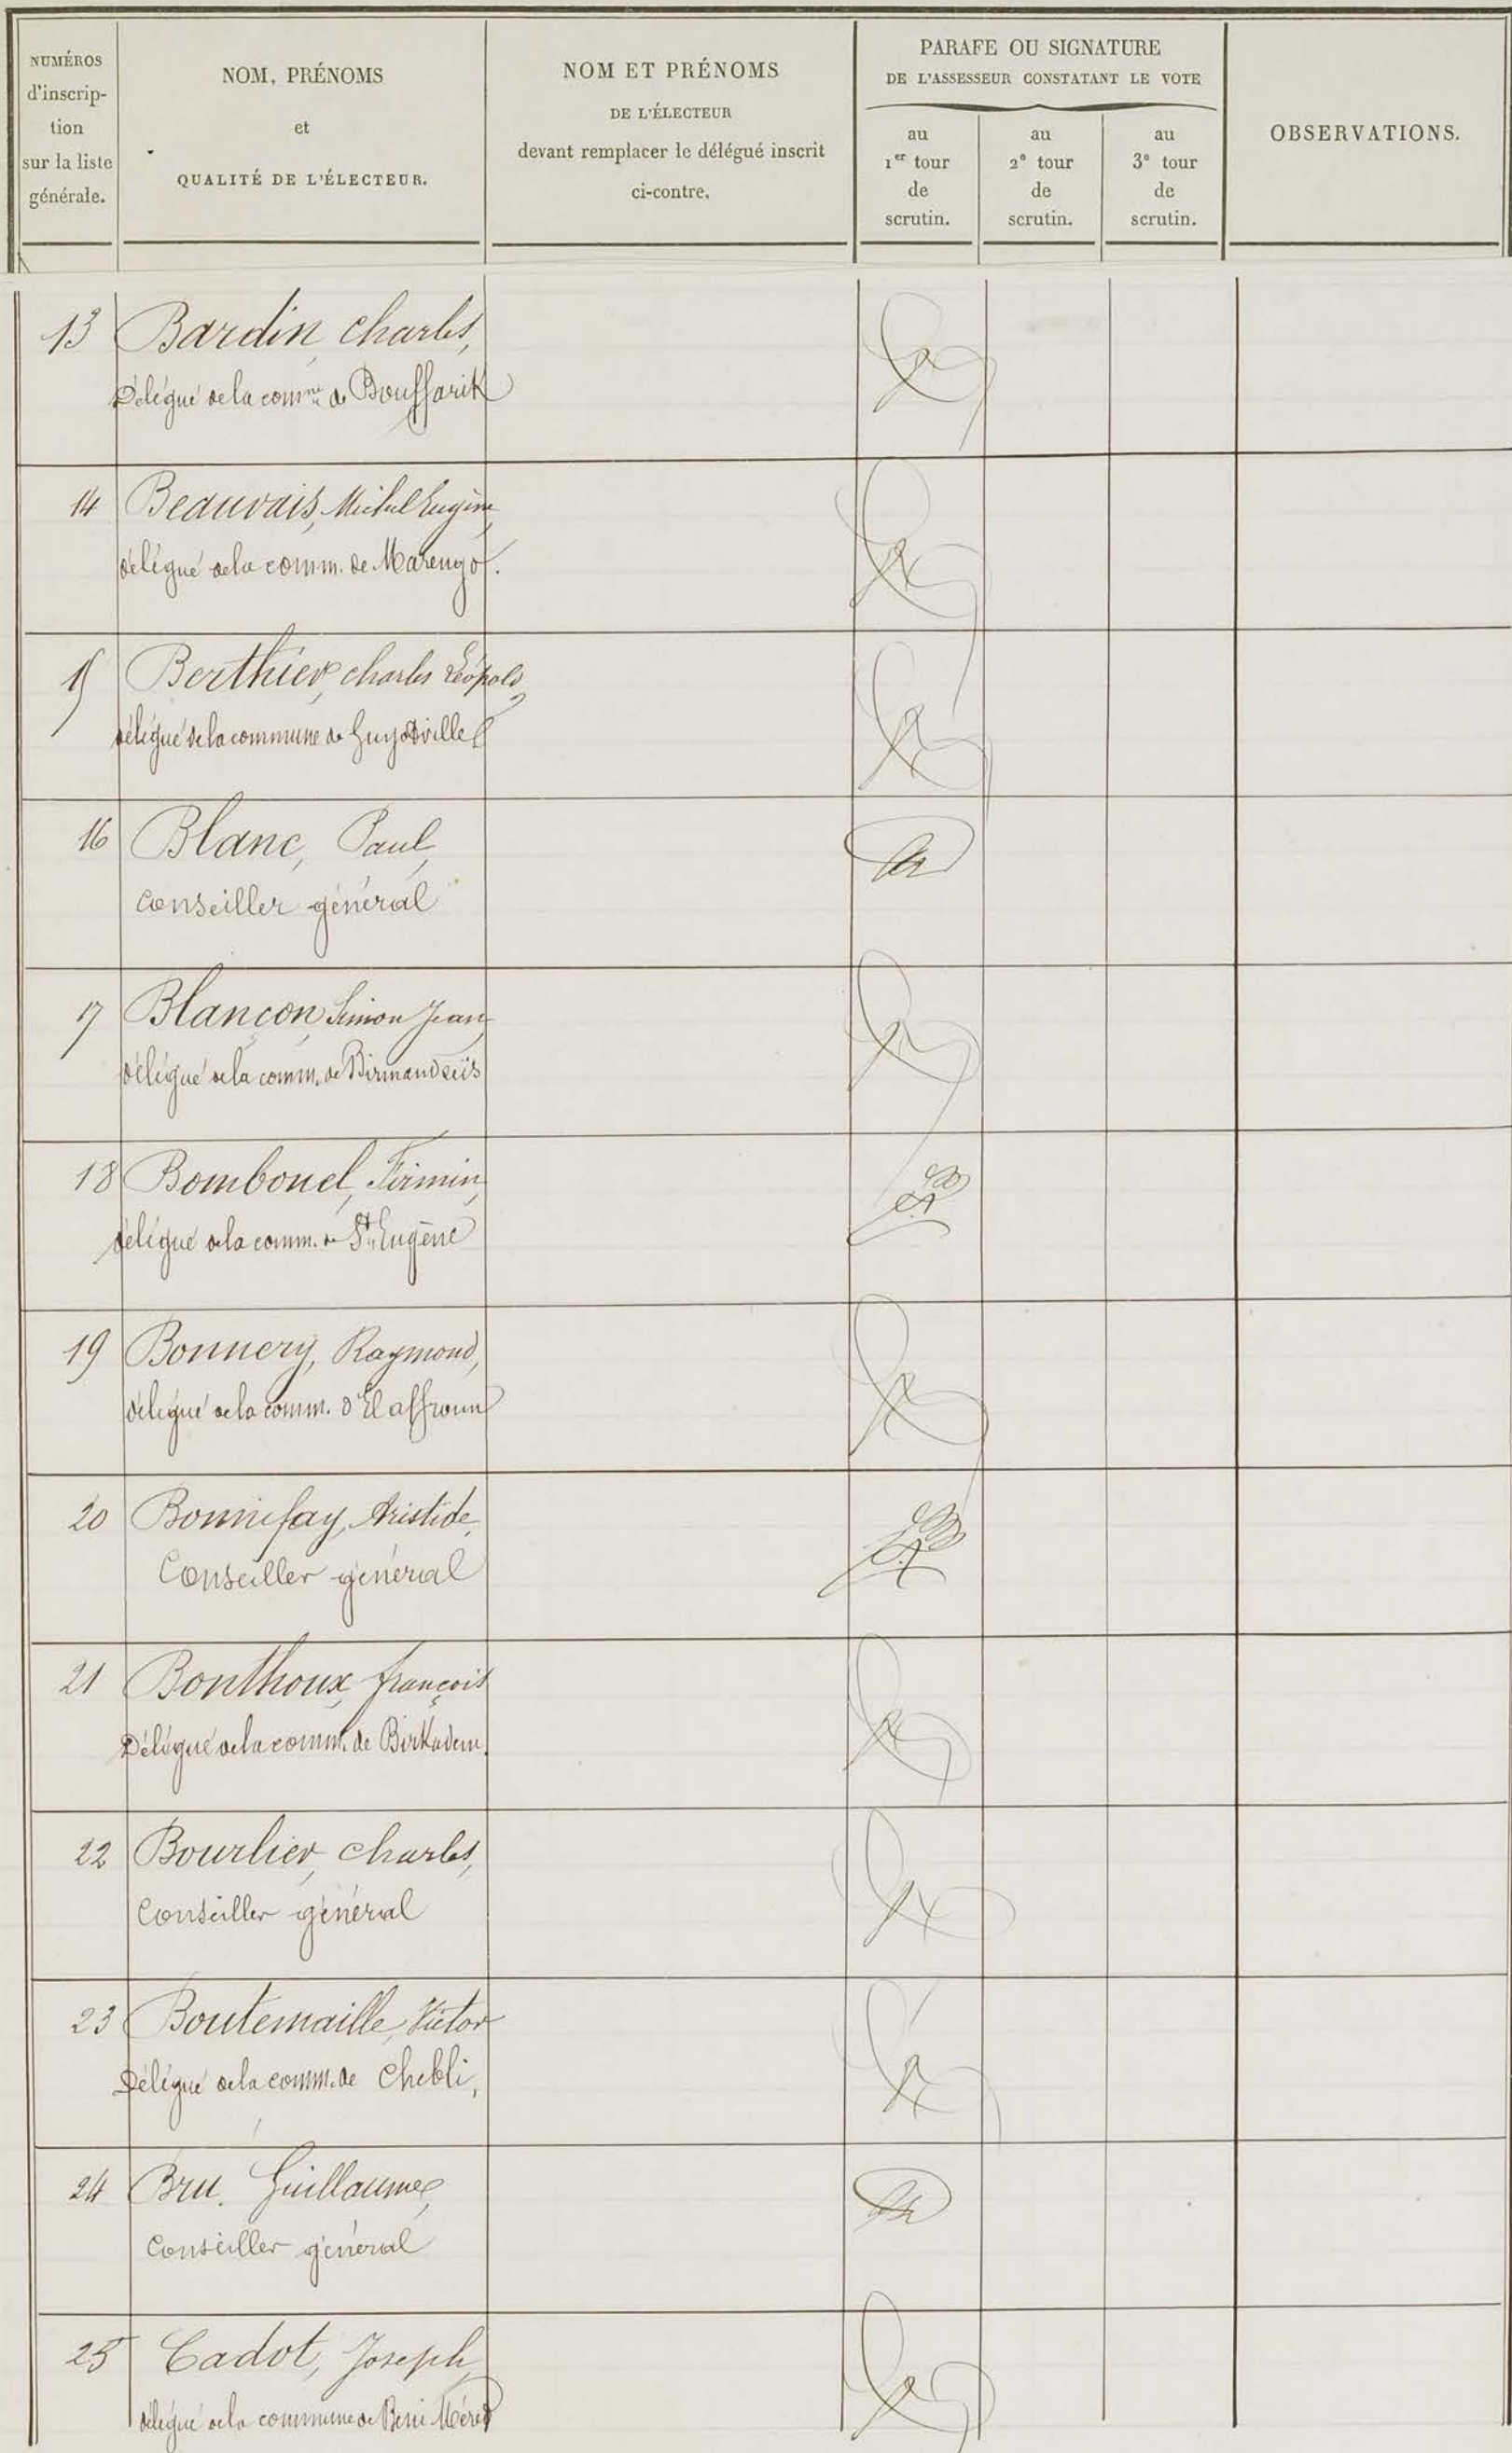 NUMÉROS
d'inscrip-
tion
sur la liste
générale.
NOM, PRÉNOMS
et
QUALITÉ DE L'ÉLECTEUR.
NOM ET PRÉNOMS
DE L'ÉLECTEUR
devant remplacer le délégué inscrit
ci-contre.
PARAFE OU SIGNATURE
DE L'ASSESSEUR CONSTATANT LE VOTE
au
1er tour
de
scrutin.
au
2e tour
de
scrutin.
au
3e tour
de
scrutin.
OBSERVATIONS.
13 Bardin, Charles,
Délégué de la comm.ne de Bouffarik
14 Beauvais, Michel Eugène,
délégué de la comm. de Marengo.
15 Berthier, Charles Léopold,
délégué de la commune de Guyotville
16 Blanc, Paul,
Conseiller général
17 Blançon, Simon Jean,
délégué de la comm. de Birmandreïs
18 Bombonel, Firmin,
délégué de la comm. de St Eugène
19 Bonnery, Raymond,
délégué de la comm. d'El affroun
20 Bonnifay, Aristide,
Conseiller général
21 Bonthoux, françois
Délégué de la comm. de Birkadem.
22 Bourlier, Charles,
Conseiller général
23 Boutemaille, Victor
Délégué de la comm. de Chebli,
24 Bru. Guillaume,
Conseiller général
25 Cadot, Joseph,
délégué de la commune de Beni Méred